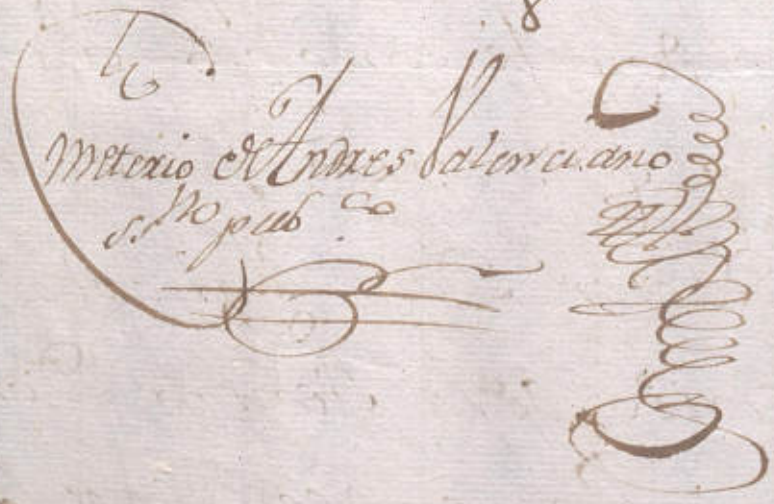 Emeterio de Andres Valenciano
ss.no pub co